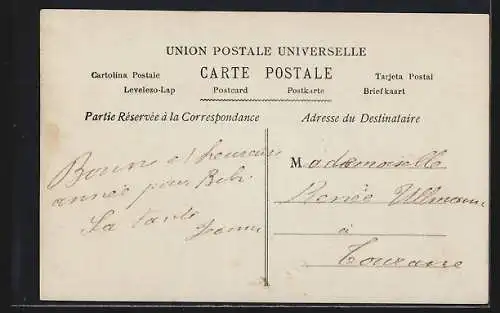 UNION POSTALE UNIVERSELLE
Cartolina Postale CARTE POSTALE Tarjeta Postal
Levelezo-Lap Postcard Postkarte Briefkaart
Partie Réservée à la Correspondance
Bonne et heureuse
année pour Bebi.
Sa tante
Adresse du Destinataire
Mademoiselle
Renée Ullmann
à
Tourane